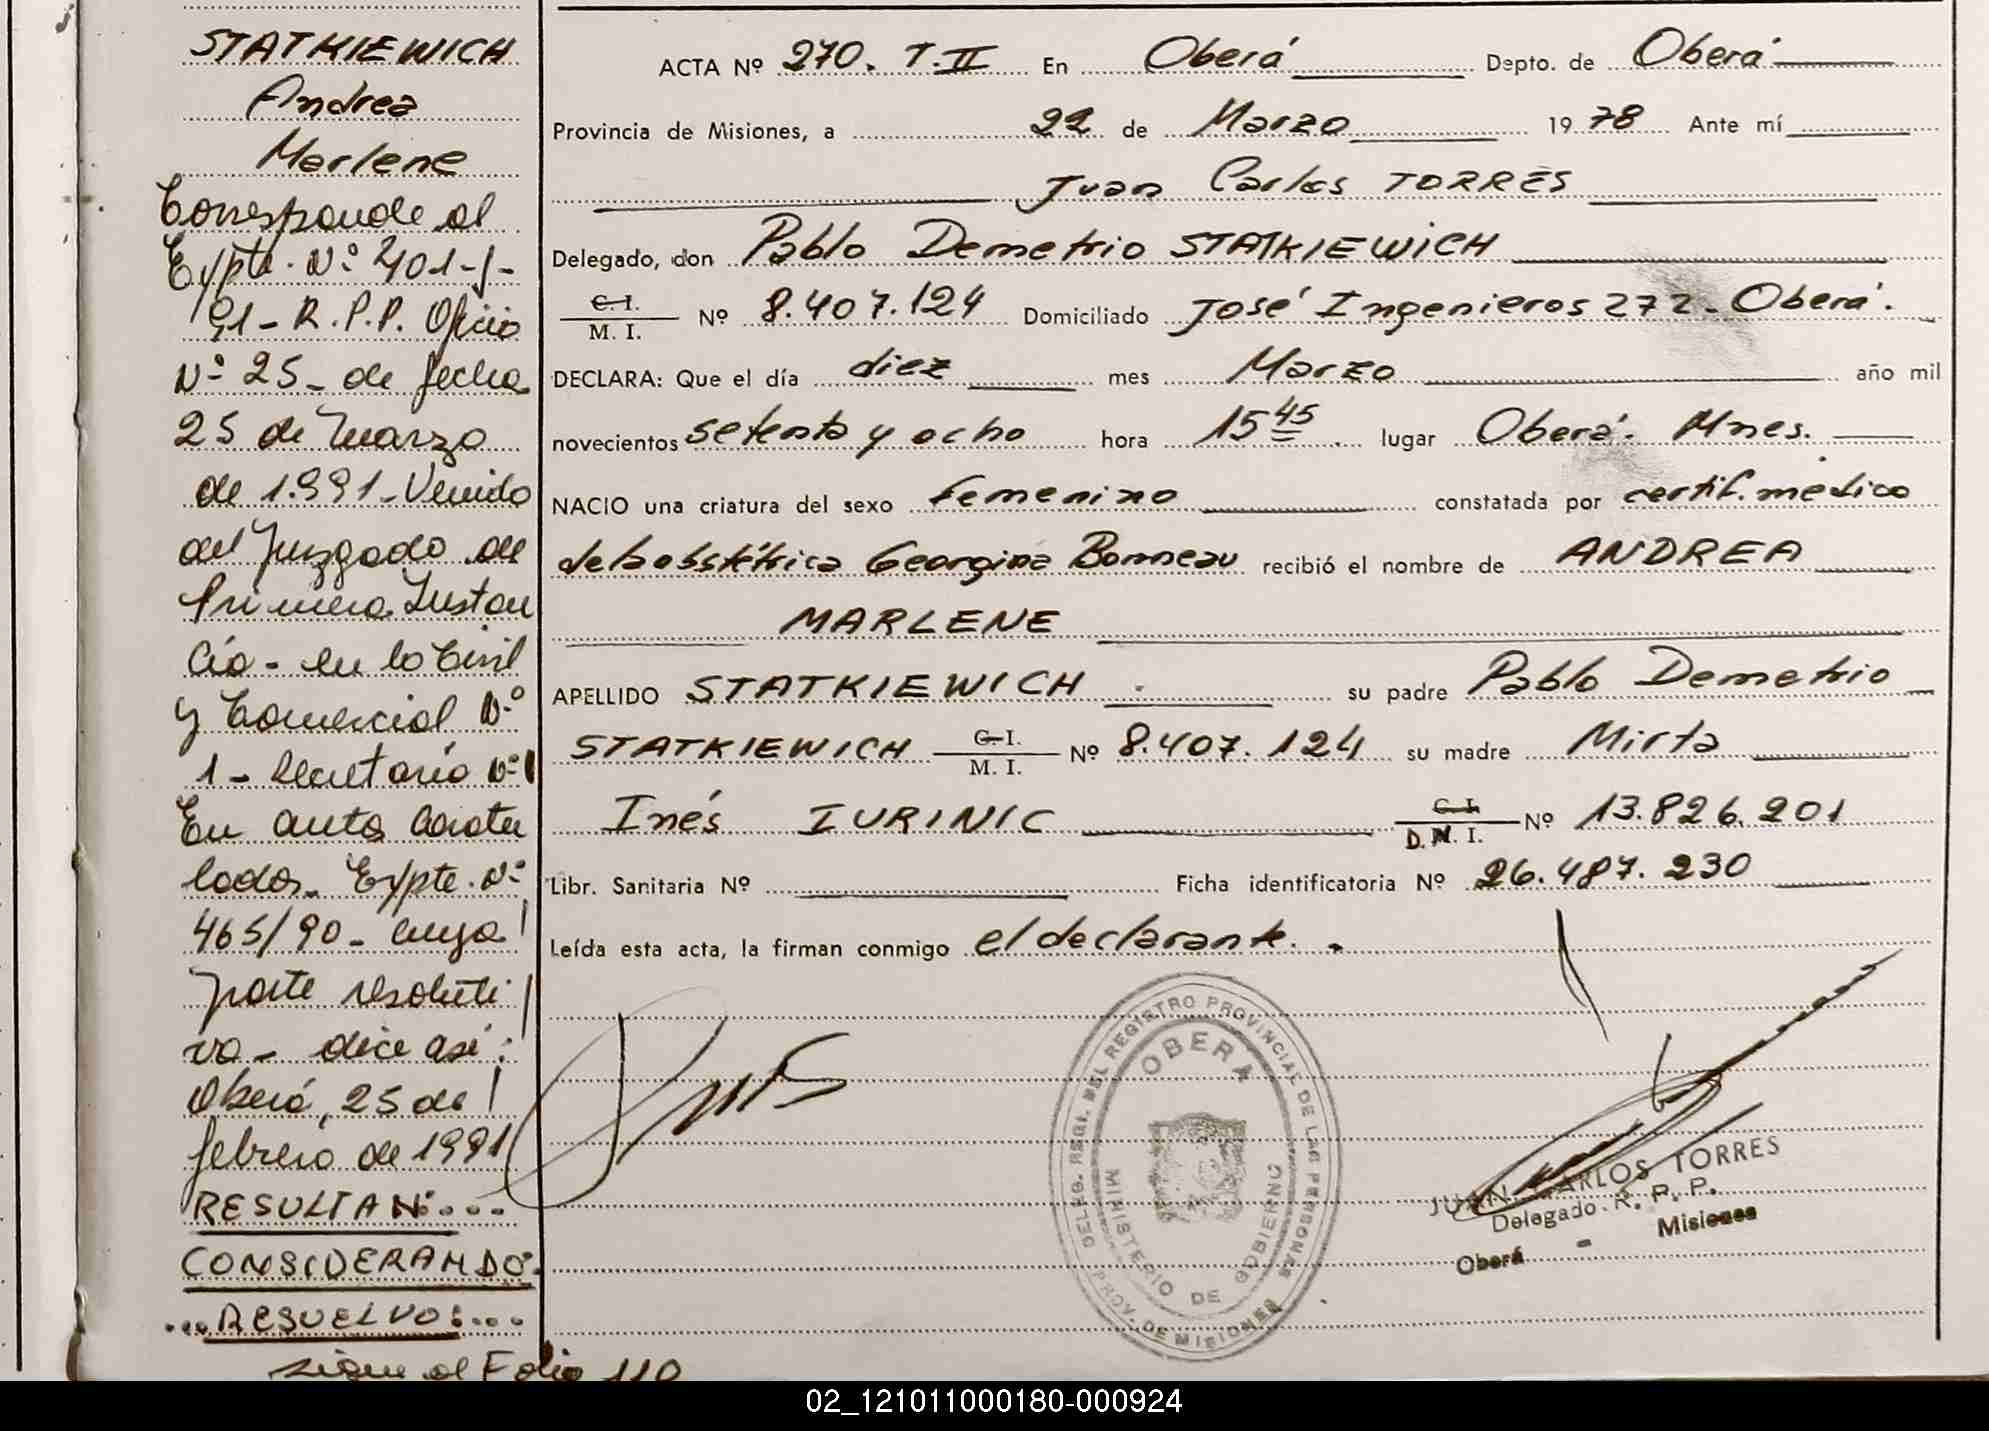 STATKIEWICH
Andrea
Marlene
Corresponde al
Expte. Nº 401-J-
91- R.P.P. Oficio
Nº 25- de fecha
25 de Marzo
de 1.991- Venido
del Juzgado de
Primera Instan
cia- en lo Civil
y Comercial Nº
1- Secretaria Nº 1
En autos Caratu
lados- Expte. Nº
465/90- cuya
parte resoluti
va- dice así:
Oberá, 25 de
febrero de 1991
RESULTAN:...
CONSIDERANDO:
...RESUELVO:...
sigue al Folio 110
ACTA Nº 270. T.II En Oberá Depto. de Oberá
Provincia de Misiones, a 22 de Marzo 1978 Ante mí
Juan Carlos TORRES
Delegado, don Pablo Demetrio STATKIEWICH
C. I. / M. I. Nº 8.407.124 Domiciliado José Ingenieros 272- Oberá.
DECLARA: Que el día diez mes Marzo año mil
novecientos setenta y ocho hora 15 45 lugar Oberá. Mnes.
NACIO una criatura del sexo femenino constatada por certif. médico
de la obstétrica Georgina Bonneau recibió el nombre de ANDREA
MARLENE
APELLIDO STATKIEWICH su padre Pablo Demetrio
STATKIEWICH C. I. / M. I. Nº 8.407.124 su madre Mirta
Inés IURINIC C. I. / D.N. I. Nº 13.826.201
Libr. Sanitaria Nº Ficha identificatoria Nº 26.487.230
Leída esta acta, la firman conmigo el declarante.
DELEG. REGL. DEL REGISTRO PROVINCIAL DE LAS PERSONAS
OBERA
MINISTERIO DE GOBIERNO
PROV. DE MISIONES
JUAN CARLOS TORRES
Delegado R. P. P.
Oberá - Misiones
02_121011000180-000924